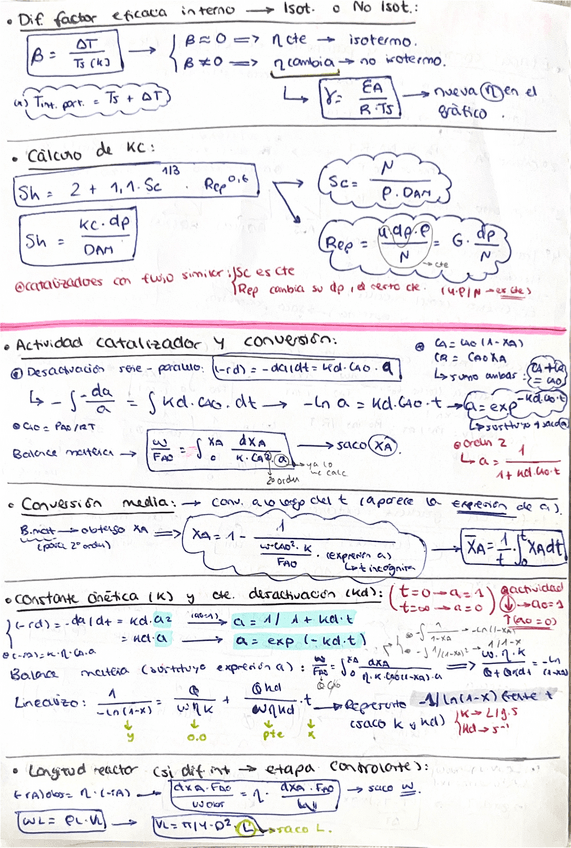 • Dif factor eficacia interno → Isot. o No Isot.:
β = ΔT / Ts (k) → { β ≈ 0 => η cte → isotermo.
β ≠ 0 => η cambia → no isotermo.
T int. part. = Ts + ΔT
↳ γ = EA / R·Ts → nueva η en el gráfico.
• Cálculo de Kc:
Sh = 2 + 1,1 · Sc^1/3 · Rep^0,6
Sc = N / ρ·DAM
Sh = kc·dp / DAM
Rep = u·dp·ρ / N = G · dp / N
→ cte
catalizadores con flujo similar: Sc es cte
Rep cambia su dp, el resto cte. (u·ρ/N → es cte)
• Actividad catalizador y conversión:
CA = CA0 (1-XA)
CR = CA0 XA
↳ sumo ambas: CA+CR = CA0
Desactivación serie-paralelo: (-rd) = -da/dt = kd·CA0·a
↳ -∫ -da/a = ∫ kd·CA0·dt → -ln a = kd·CA0·t → a = exp^-kd·CA0·t
CA0 = PA0/RT
Balance materia → W/FA0 = ∫0^XA dXA / k·CA²·a → saco XA
2º orden
ya lo he calc
orden 2
↳ a = 1 / 1+kd·CA0·t
• Conversión media: → conv. a lo largo del t (aparece la expresión de a).
B.mat → obtengo XA => XA = 1 - 1 / W·CA0²·k/FA0 · (expresión a) → X̄A = 1/t · ∫0^t XA dt
(para 2º orden)
↳ t incógnita
• Constante cinética (K) y cte. desactivación (Kd): (t=0 → a=1
t=∞ → a=0)
actividad
a0=1
(a0=0)
(-rd) = -da/dt = kd·a² → a = 1/1+kd·t
= kd·a → a = exp(-kd·t)
(-rA) = k·η·CA·a
∫ 1/1-XA → -ln(1-XA)
∫ 1/(1-XA)² → 1/1-X
Balance materia (sustituyo expresión a): W/FA0 = ∫0^XA dXA / η·k·CA0(1-XA)·a => W·η·k / Q+Qkd·t = -ln(1-XA)
Linealizo: 1 / -ln(1-X) = Q / W·η·k + Qkd / Wηkd · t → Represento -1/ln(1-X) frente t
y
o.o
pte
x
(saco k y kd) { k → L/g.s
kd → s⁻¹
• Longitud reactor (si dif int → etapa controlante):
(-rA)obs = η·(-rA) → dXA·FA0 / W obs = η · dXA·FA0 / W → saco W.
WL = ρL·VL → VL = π/4·D²·L → saco L.